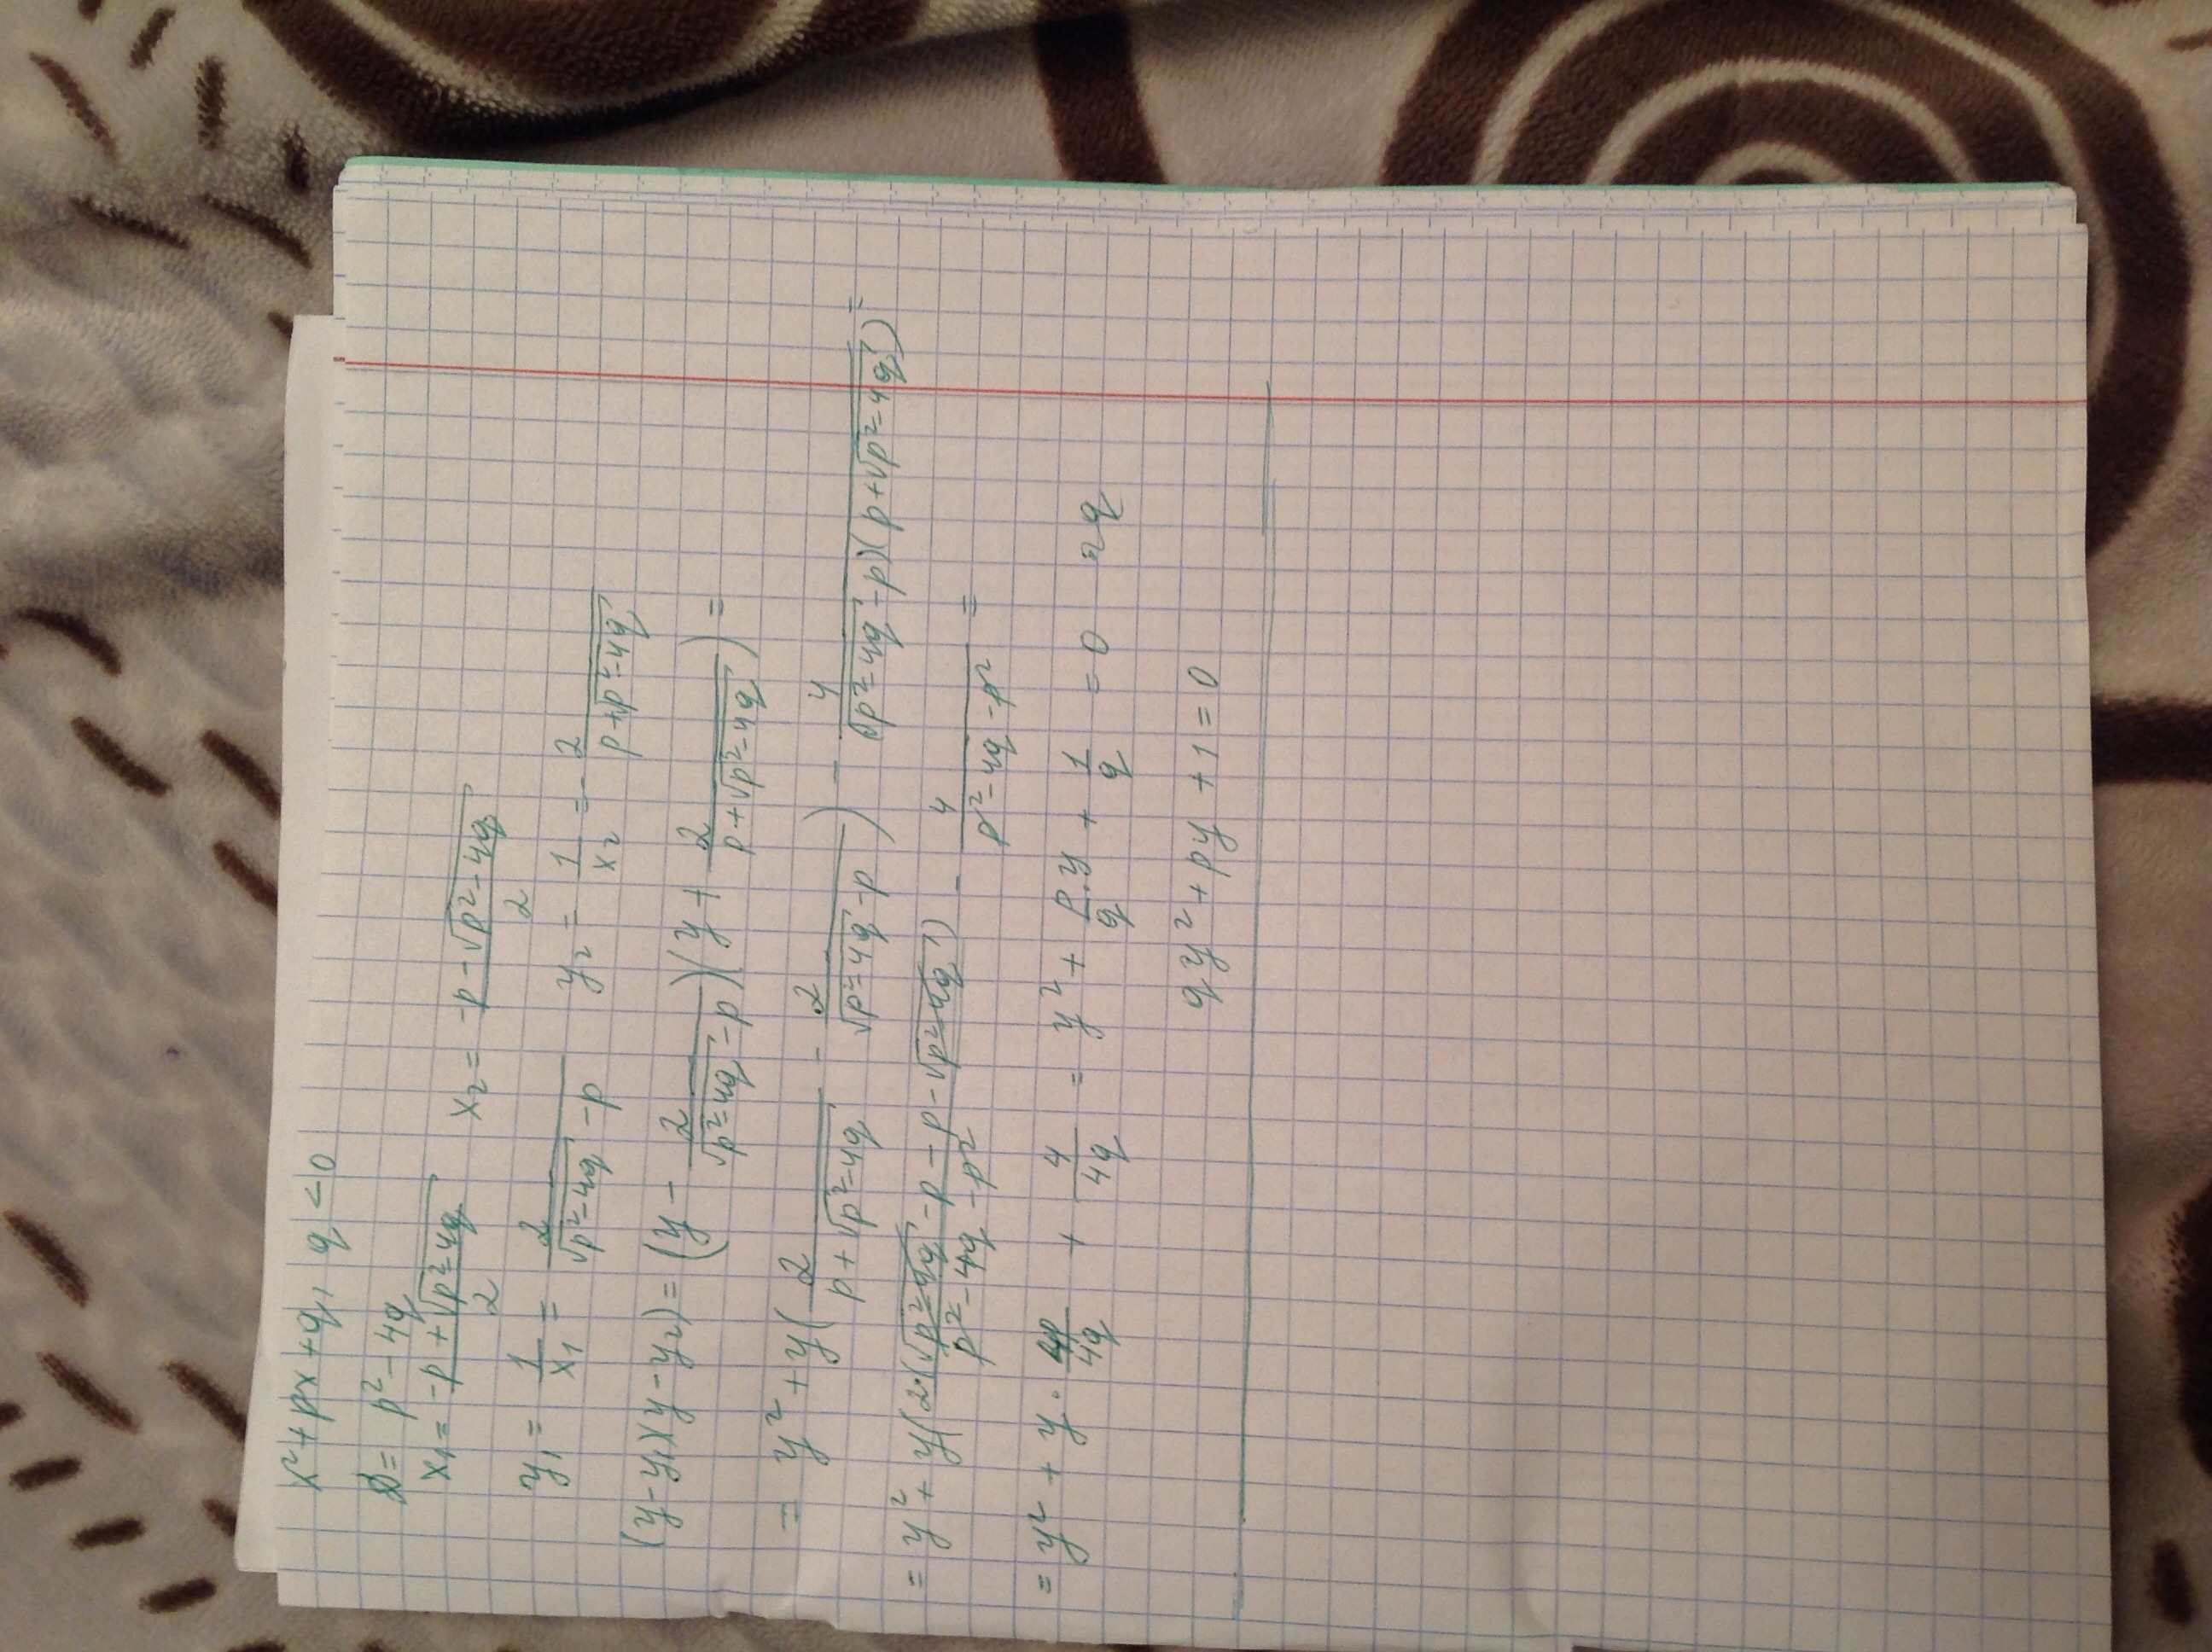 x² + px + q, q < 0
D = p² - 4q
x₁ = (-p + √(p² - 4q))/2 x₂ = (-p - √(p² - 4q))/2
y₁ = 1/x₁ = 2/(√(p² - 4q) - p) y₂ = 1/x₂ = - 2/(p + √(p² - 4q))
(y - y₁)(y - y₂) = (y - 2/(√(p² - 4q) - p))(y + 2/(p + √(p² - 4q))) =
= y² + y(2/(p + √(p² - 4q)) - 2/(√(p² - 4q) - p)) - 4/((√(p² - 4q) - p)(p + √(p² - 4q))) =
= y² + y(2·(√(p² - 4q) - p - p - √(p² - 4q))/(p² - 4q - p²)) - 4/(p² - 4q - p²) =
= y² + y · 4p/4q + 4/4q = y² + p/q · y + 1/q = 0
qy² + py + 1 = 0